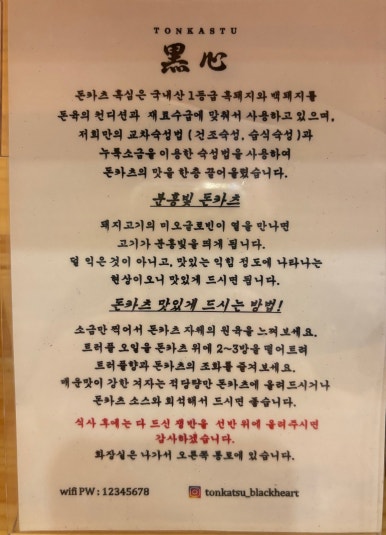 TONKASTU
黑心
돈카츠 흑심은 국내산 1등급 흑돼지와 백돼지를
돈육의 컨디션과 재료수급에 맞춰서 사용하고 있으며,
저희만의 교차숙성법 (건조숙성, 습식숙성)과
누룩소금을 이용한 숙성법을 사용하여
돈카츠의 맛을 한층 끌어올렸습니다.
분홍빛 돈카츠
돼지고기의 미오글로빈이 열을 만나면
고기가 분홍빛을 띄게 됩니다.
덜 익은것이 아니고, 맛있는 익힘 정도에 나타나는
현상이오니 맛있게 드시면 됩니다.
돈카츠 맛있게 드시는 방법!
소금만 찍어서 돈카츠 자체의 원육을 느껴보세요.
트러플 오일을 돈카츠 위에 2~3방울 떨어트려
트러플향과 돈카츠의 조화를 즐겨보세요.
매운맛이 강한 겨자는 적당량만 돈카츠에 올려드시거나
돈카츠 소스와 희석해서 드시면 좋습니다.
식사 후에는 다 드신 쟁반을 선반 위에 올려주시면
감사하겠습니다.
화장실은 나가서 오른쪽 통로에 있습니다.
wifi PW : 12345678
tonkatsu_blackheart